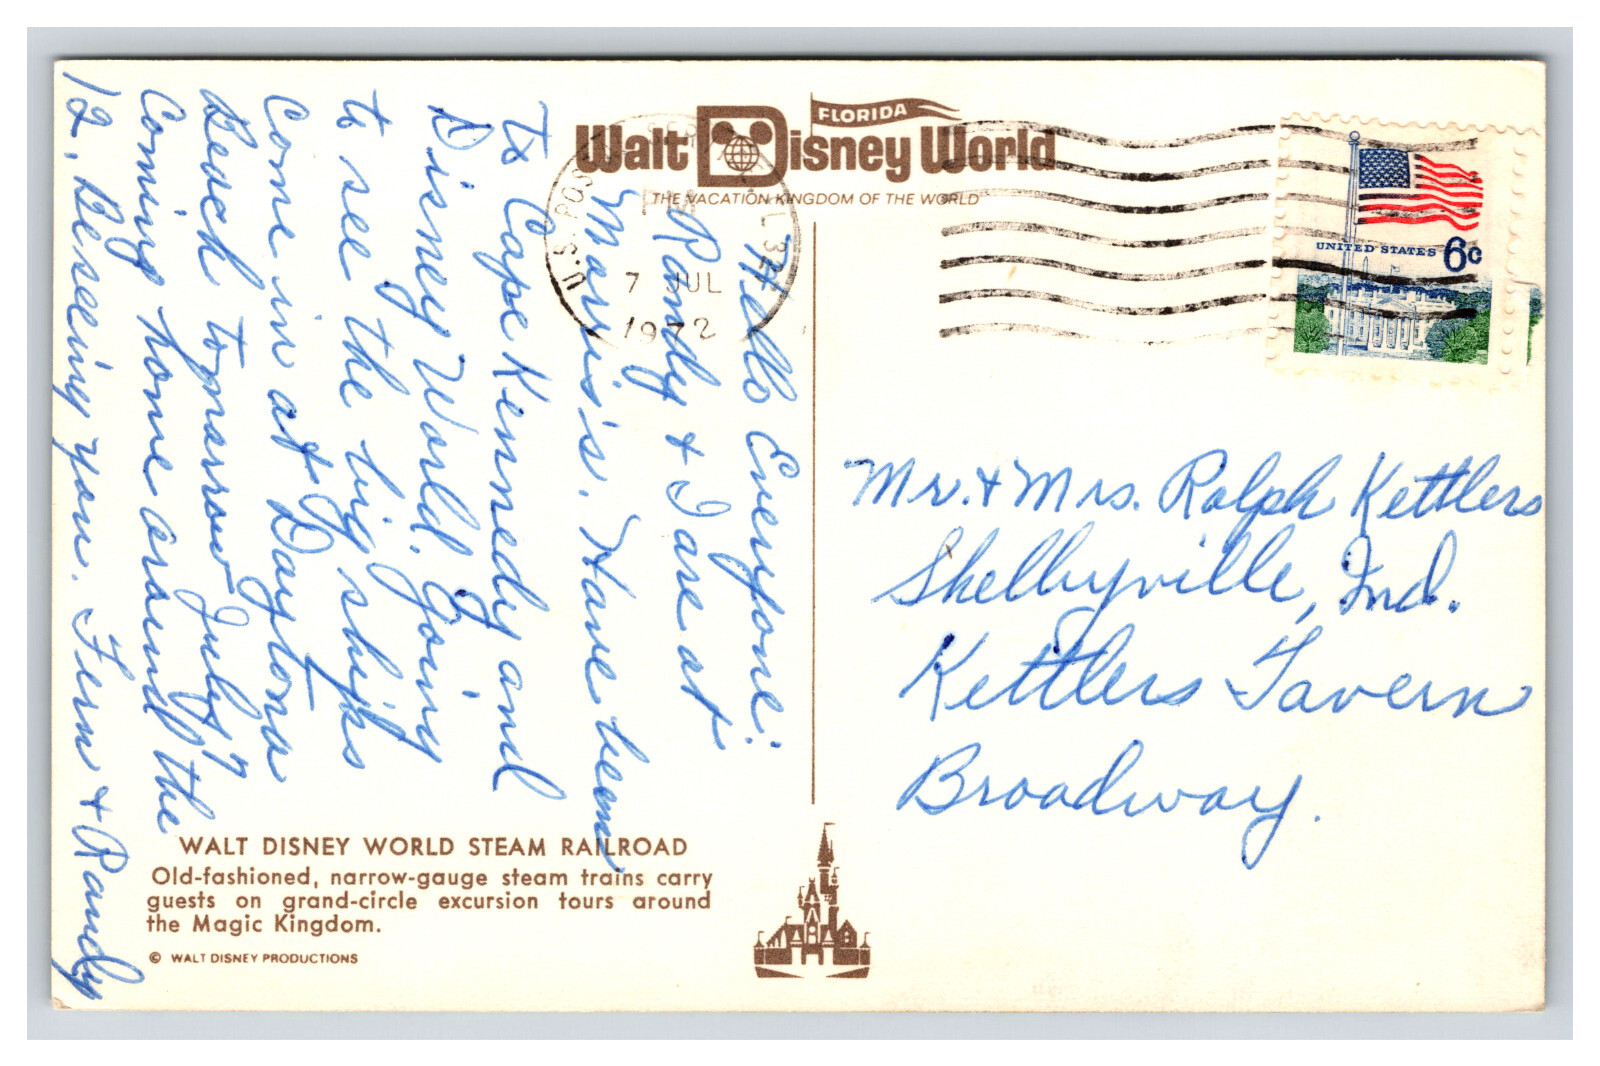 FLORIDA
Walt Disney World
THE VACATION KINGDOM OF THE WORLD
U.S. POS
7 JUL
1972
UNITED STATES 6c
Hello Everyone:
Randy + I are at
Morris's. Have been
to Cape Kennedy and
Disney World. Going
to see the big ships
Come in at Daytona
Beach tomorrow July 7
Coming home around the
12. Beseeing you. Fern + Randy
Mr. + Mrs. Ralph Kettlers
Shelbyville, Ind.
Kettlers Tavern
Broadway.
WALT DISNEY WORLD STEAM RAILROAD
Old-fashioned, narrow-gauge steam trains carry
guests on grand-circle excursion tours around
the Magic Kingdom.
© WALT DISNEY PRODUCTIONS